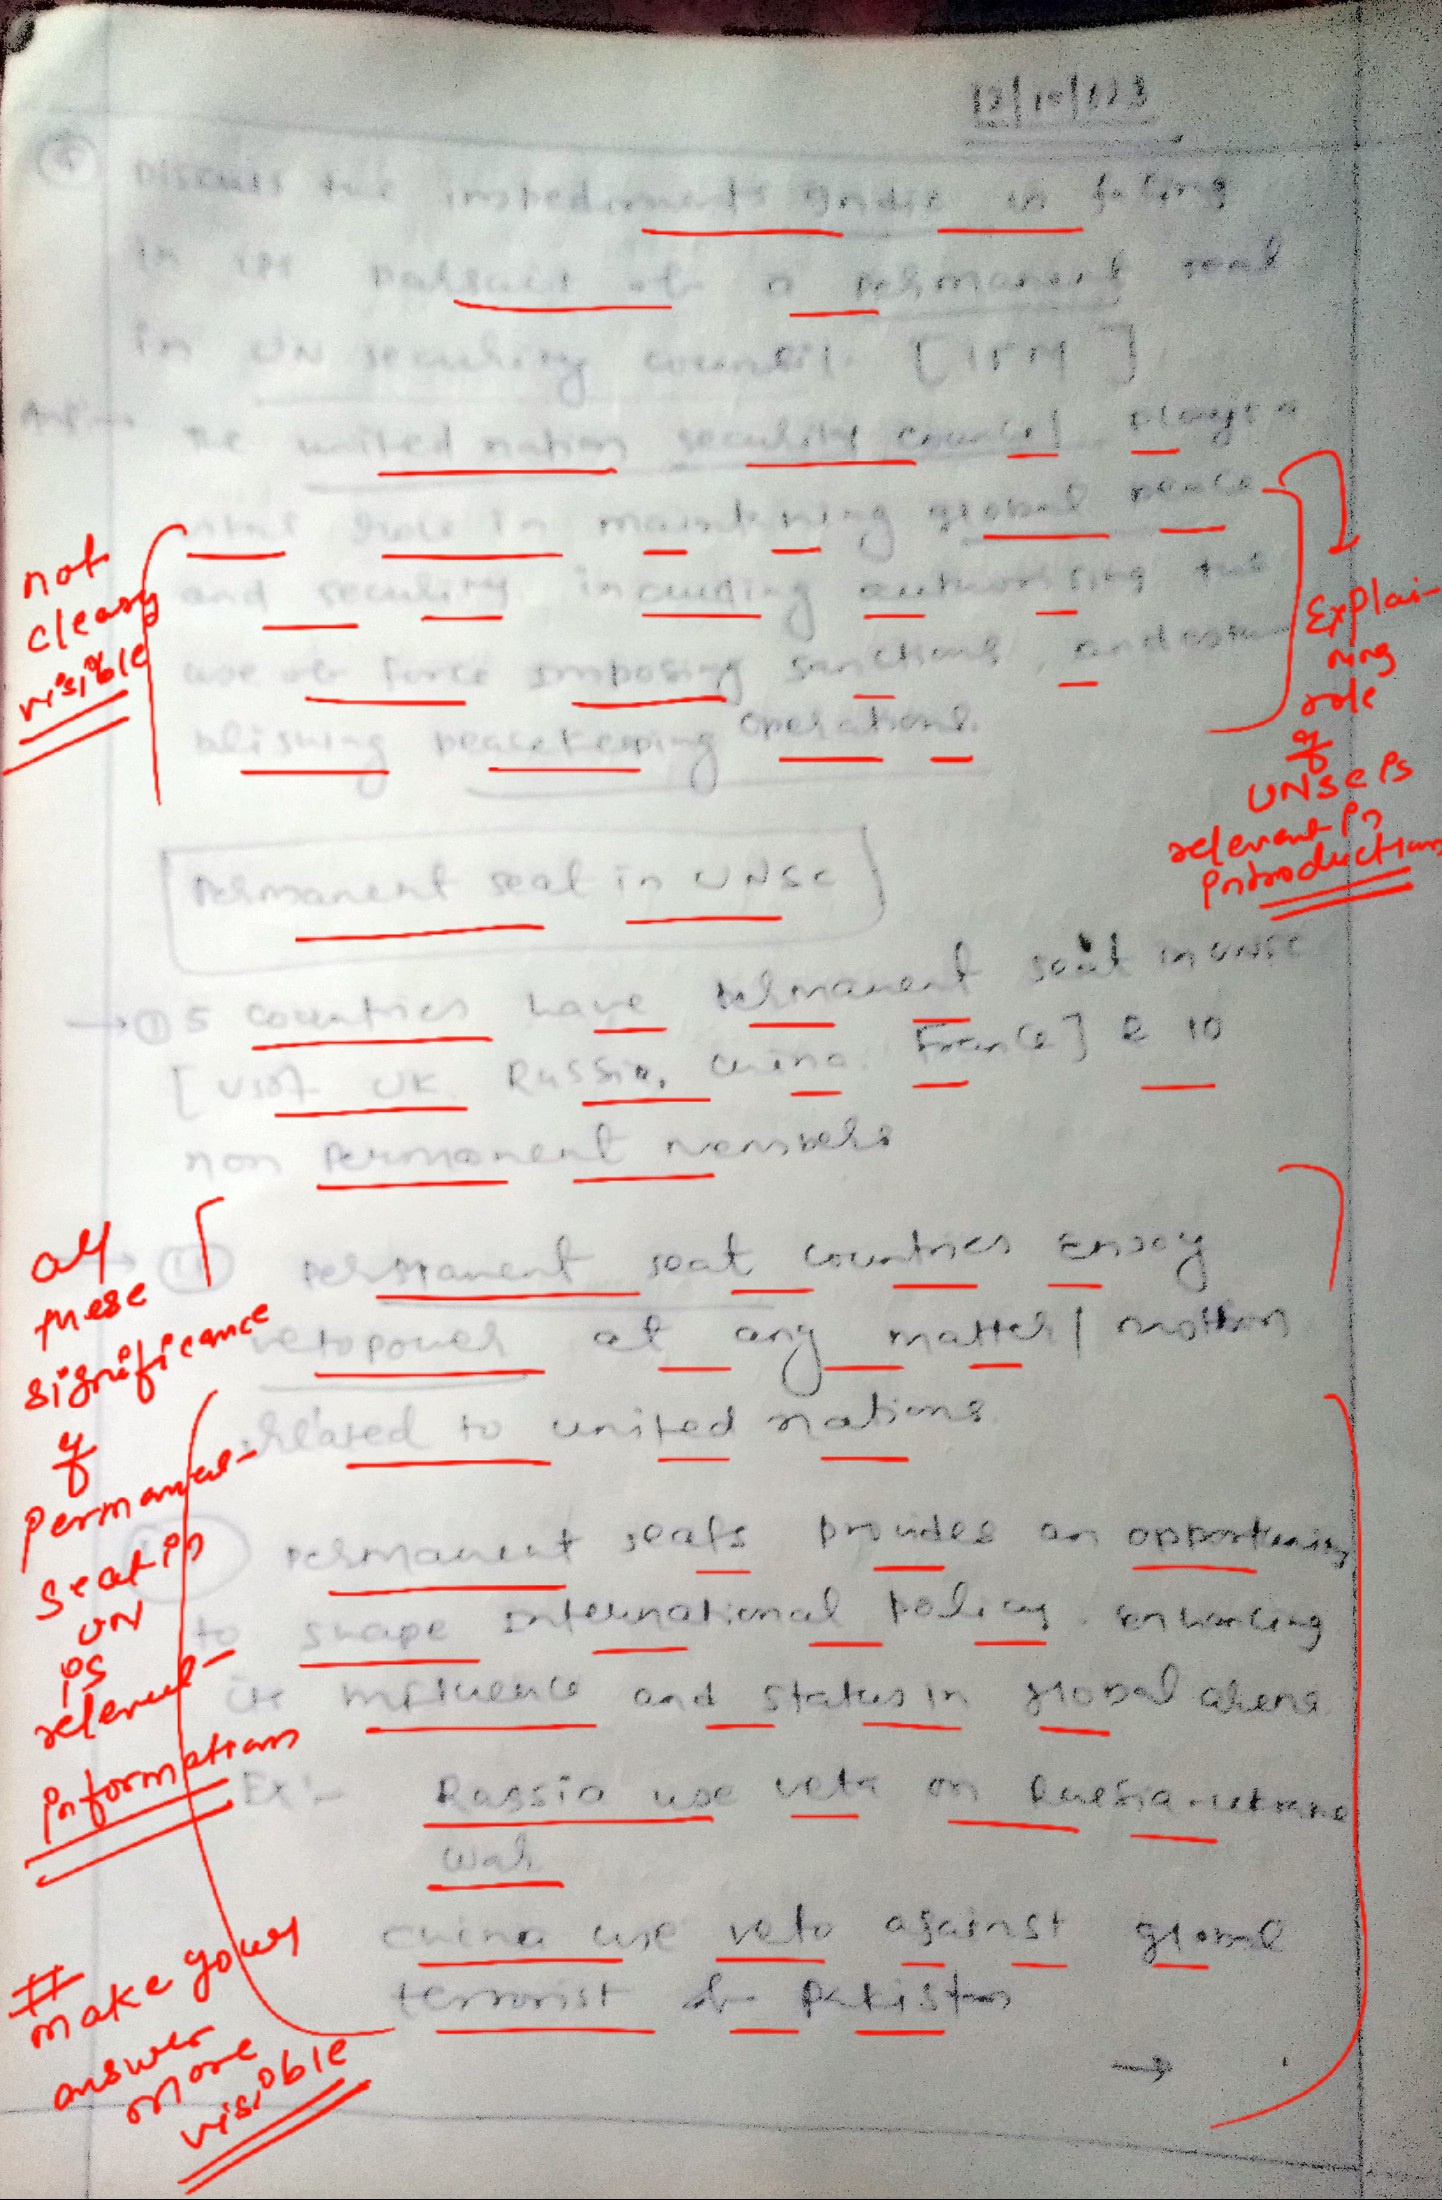 Discuss the impediments India is facing
in its pursuit of a permanent seat
in UN security council. [15M]
The united nation security council plays a
vital role in maintaining global peace
and security including authorising the
use of force imposing sanctions, and esta-
blishing peacekeeping operations.
not
clearly
visible
Explai-
ning
role
of
UNSC is
relevant in
introduction
Permanent seat in UNSC
→ (i) 5 countries have permanent seat in UNSC
[USA UK, Russia, China, France] & 10
non permanent members
→ (ii) Permanent seat countries enjoy
veto power at any matter / motion
related to united nations.
Permanent seats provides an opportunity
to shape international policy, enhancing
its influence and status in global arena
Ex:- Russia use veto on Russia-ukrane
war.
China use veto against global
terrorist of Pakistan
→
all
these
significance
of
permanent
seat in
UN
is
relevant
information
# make your
answer
more
visible